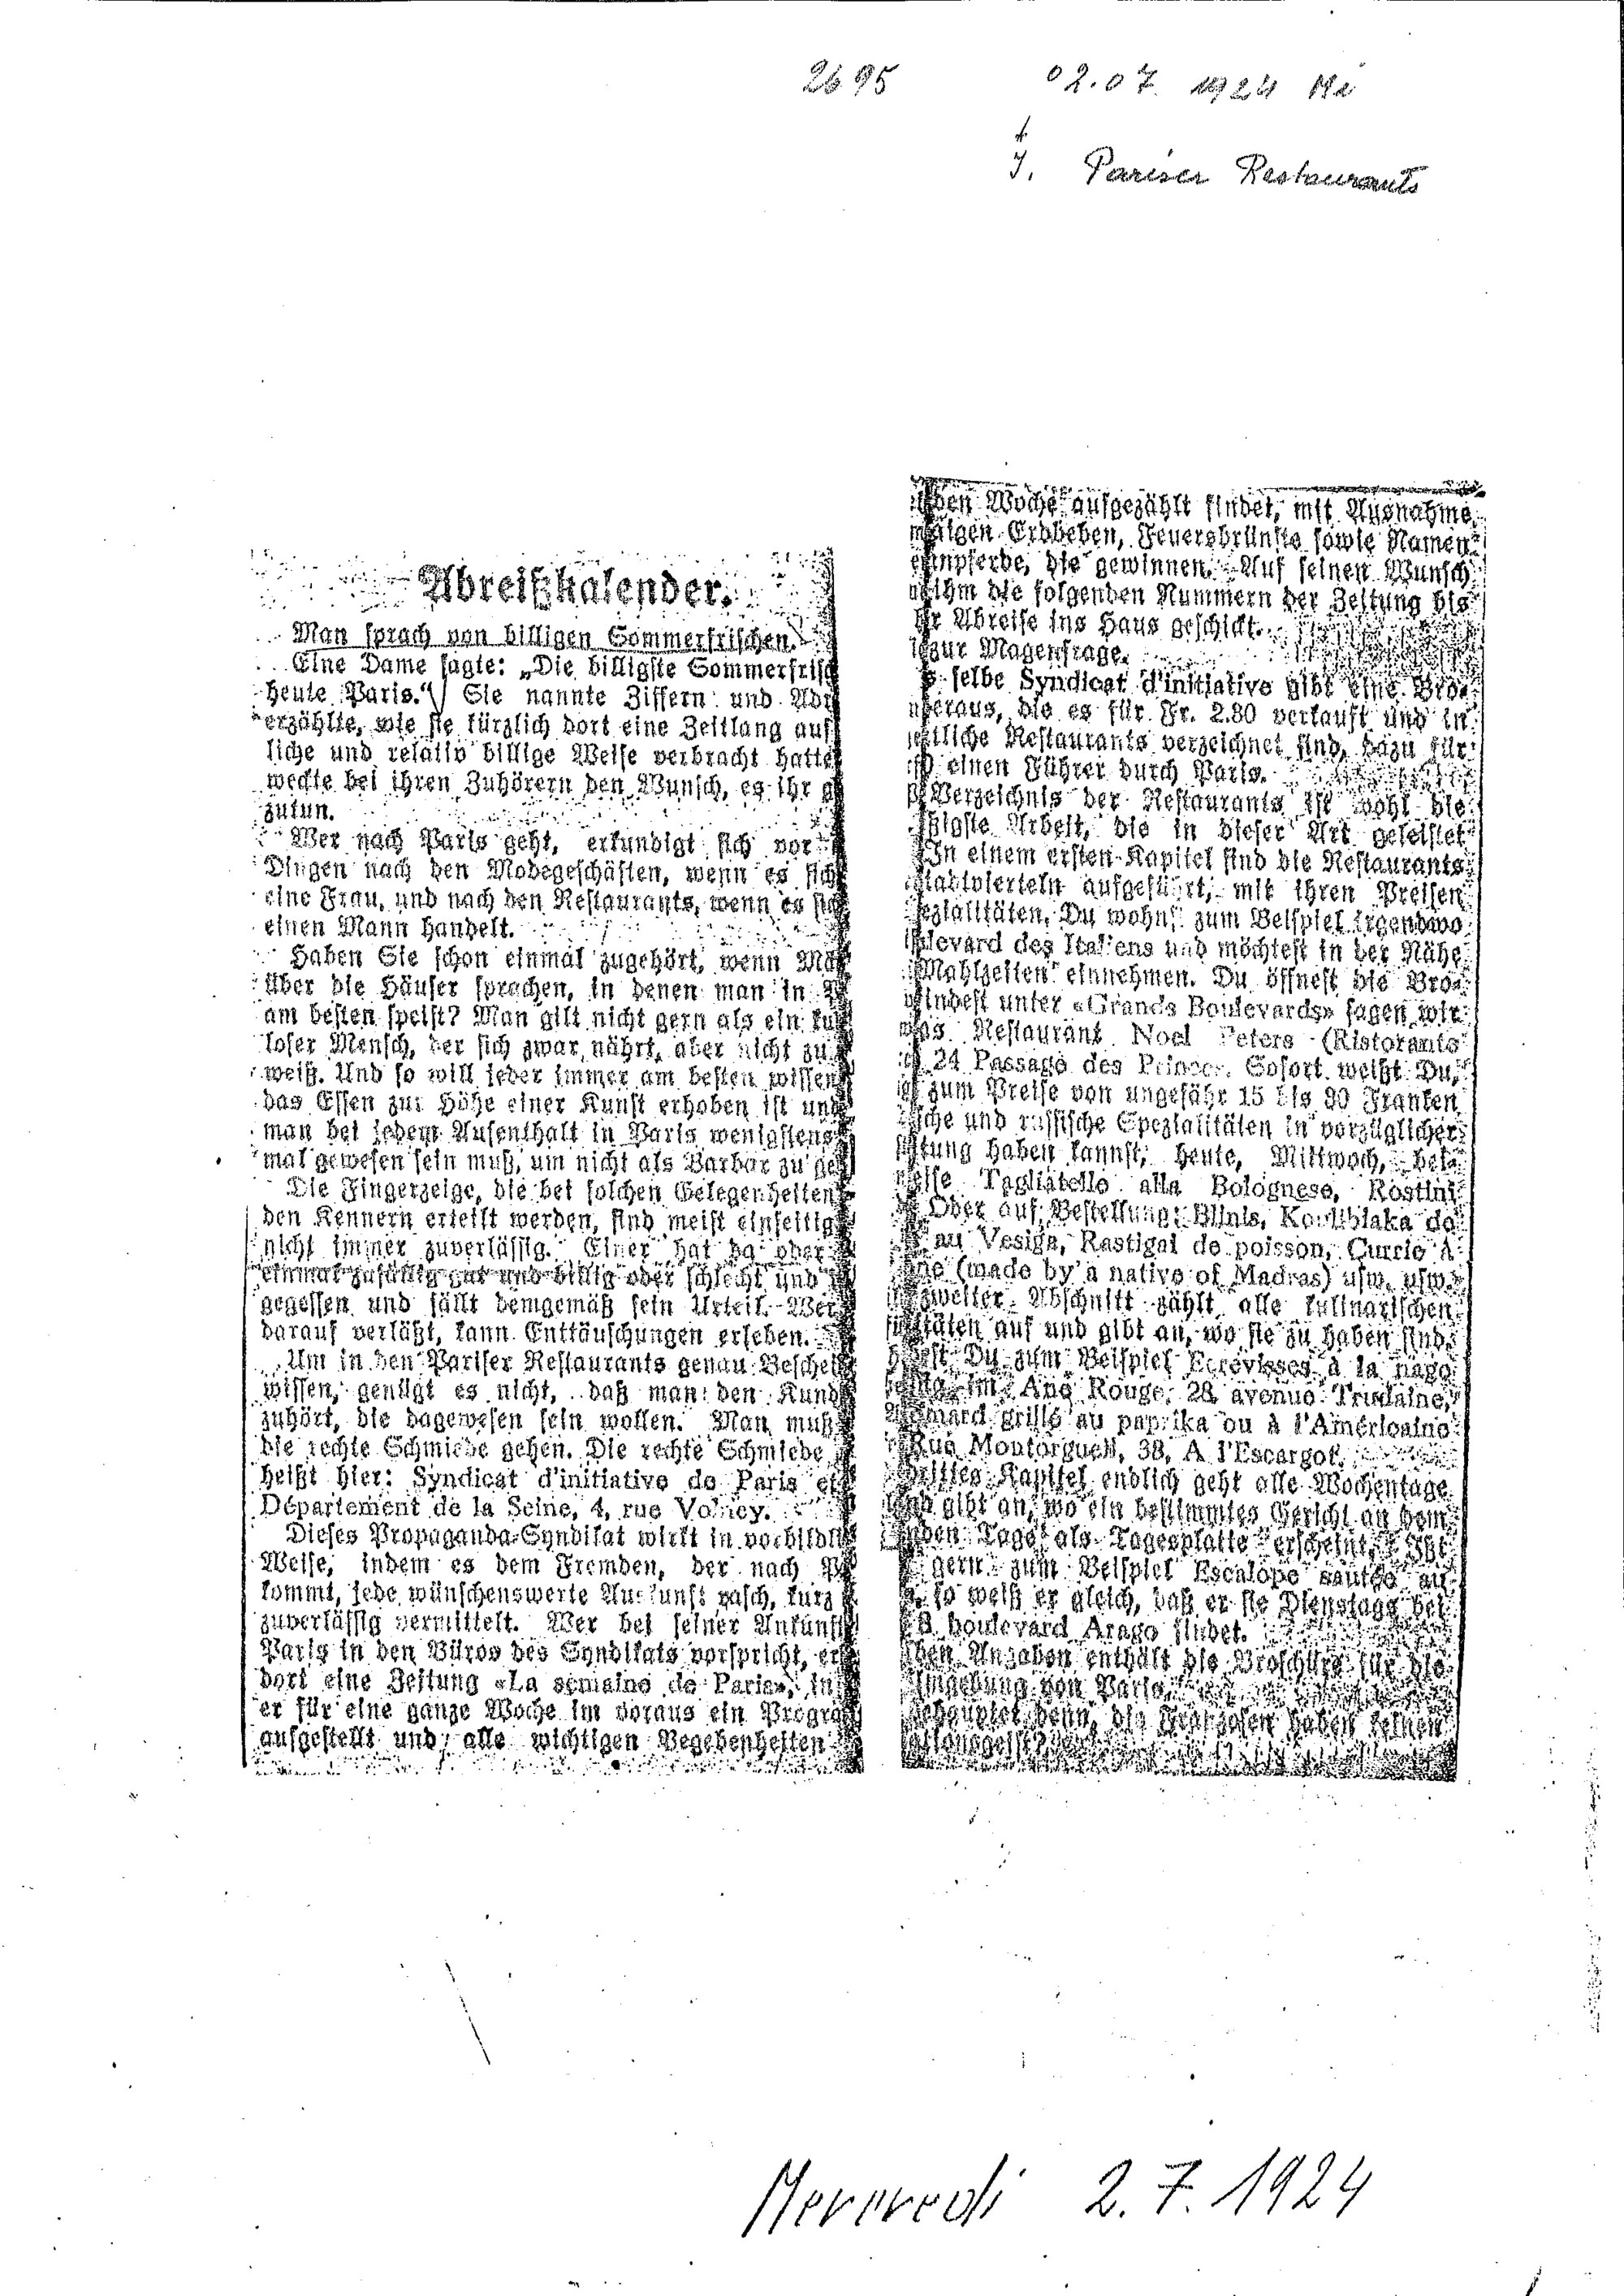 2695 02.07. 1924 Mi
J. Pariser Restaurants
Abreißkalender.
Man sprach von billigen Sommerfrischen.
Eine Dame sagte: „Die billigste Sommerfrisch
heute Paris.“ Sie nannte Ziffern und Adr
erzählte, wie sie kürzlich dort eine Zeitlang auf
liche und relativ billige Weise verbracht hatte
weckte bei ihren Zuhörern den Wunsch, es ihr g
zutun.
Wer nach Paris geht, erkundigt sich vor
Dingen nach den Modegeschäften, wenn es sich
eine Frau, und nach den Restaurants, wenn es sich
einen Mann handelt.
Haben Sie schon einmal zugehört, wenn Mä
über die Häuser sprachen, in denen man in
am besten speist? Man gilt nicht gern als ein kul
loser Mensch, der sich zwar nährt, aber nicht zu
weiß. Und so will jeder immer am besten wissen
das Essen zur Höhe einer Kunst erhoben ist und
man bei jedem Aufenthalt in Paris wenigstens
mal gewesen sein muß, um nicht als Barbar zu gel
Die Fingerzeige, die bei solchen Gelegenheiten
den Kennern erteilt werden, sind meist einseitig
nicht immer zuverlässig. Einer hat da oder
einmal zufällig gut und billig oder schlecht und
gegessen und fällt demgemäß sein Urteil. Wer
darauf verläßt, kann Enttäuschungen erleben.
Um in den Pariser Restaurants genau Beschei
wissen, genügt es nicht, daß man den Kund
zuhört, die dagewesen sein wollen. Man muß
die rechte Schmiede gehen. Die rechte Schmiede
heißt hier: Syndicat d'initiative de Paris et
Département de la Seine, 4, rue Volney.
Dieses Propaganda-Syndikat wirkt in vorbildli
Weise, indem es dem Fremden, der nach
kommt, jede wünschenswerte Auskunft rasch, kurz
zuverlässig vermittelt. Wer bei seiner Ankunft
Paris in den Büros des Syndikats vorspricht, er
dort eine Zeitung «La semaine de Paris», in
er für eine ganze Woche im voraus ein Progra
aufgestellt und alle wichtigen Begebenheiten
den Woche aufgezählt findet, mit Ausnahme
Erdbeben, Feuersbrünste sowie Namen
pferde, die gewinnen. Auf seinen Wunsch
ihm die folgenden Nummern der Zeitung bis
Abreise ins Haus geschickt.
zur Magenfrage.
selbe Syndicat d'initiative gibt eine Bro-
heraus, die es für Fr. 2.80 verkauft und in
Restaurants verzeichnet sind, dazu für
einen Führer durch Paris.
Verzeichnis der Restaurants ist wohl die
Arbeit, die in dieser Art geleistet
In einem ersten Kapitel sind die Restaurants
Stadtvierteln aufgeführt, mit ihren Preisen
Spezialitäten. Du wohnst zum Beispiel irgendwo
levard des Italiens und möchtest in der Nähe
Mahlzeiten einnehmen. Du öffnest die Bro-
findest unter «Grands Boulevards» sagen wir
Restaurant Noel Peters (Ristorante
24 Passage des Princes. Sofort weißt Du,
zum Preise von ungefähr 15 bis 30 Franken
sche und russische Spezialitäten in vorzüglicher
tung haben kannst, heute, Mittwoch, bei-
Tagliatelle alla Bolognese, Rostini
Oder auf Bestellung: Blinis, Koulibiaka de
au Vesiga, Rastigai de poisson, Currie à
(made by a native of Madras) usw. usw.
zweiter Abschnitt zählt alle kulinarischen
täten auf und gibt an, wo sie zu haben sind.
Du zum Beispiel Ecrevisses à la nage
im Ane Rouge, 28 avenue Trudaine,
Homard grillé au paprika ou à l'Américaine
Rue Montorgueil, 38, A l'Escargot.
drittes Kapitel endlich geht alle Wochentage
gibt an, wo ein bestimmtes Gericht an dem
Tage als Tagesplatte erscheint. Ißt
gern zum Beispiel Escalope sautée au
so weiß er gleich, daß er sie Dienstags bei
boulevard Arago findet.
Angaben enthält die Broschüre für die
Umgebung von Paris.
behauptet denn, die Franzosen haben keinen
Mercredi 2.7.1924